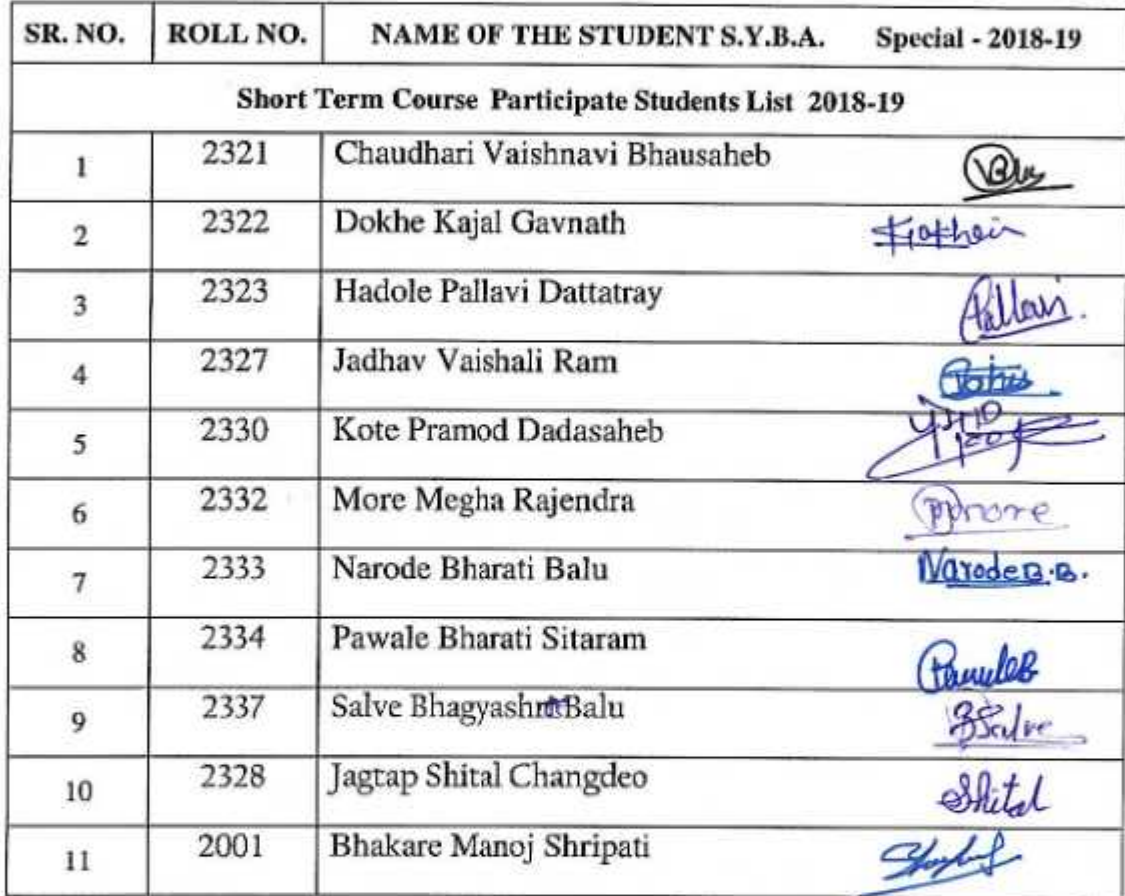 SR. NO. ROLL NO. NAME OF THE STUDENT S.Y.B.A. Special - 2018-19
Short Term Course Participate Students List 2018-19
1 2321 Chaudhari Vaishnavi Bhausaheb
2 2322 Dokhe Kajal Gavnath
3 2323 Hadole Pallavi Dattatray Pallavi.
4 2327 Jadhav Vaishali Ram
5 2330 Kote Pramod Dadasaheb
6 2332 More Megha Rajendra
7 2333 Narode Bharati Balu Narode B.B.
8 2334 Pawale Bharati Sitaram
9 2337 Salve Bhagyashri Balu BSalve
10 2328 Jagtap Shital Changdeo Shital
11 2001 Bhakare Manoj Shripati